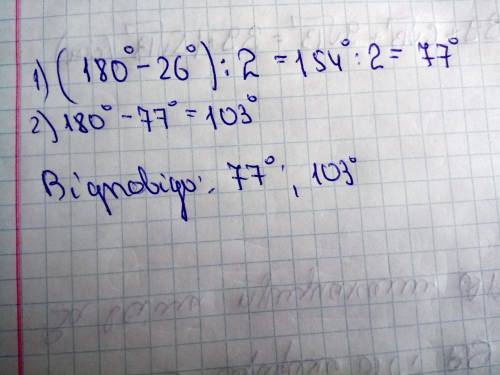 1) (180° - 26°) : 2 = 154° : 2 = 77°
2) 180° - 77° = 103°
Відповідь: 77°; 103°